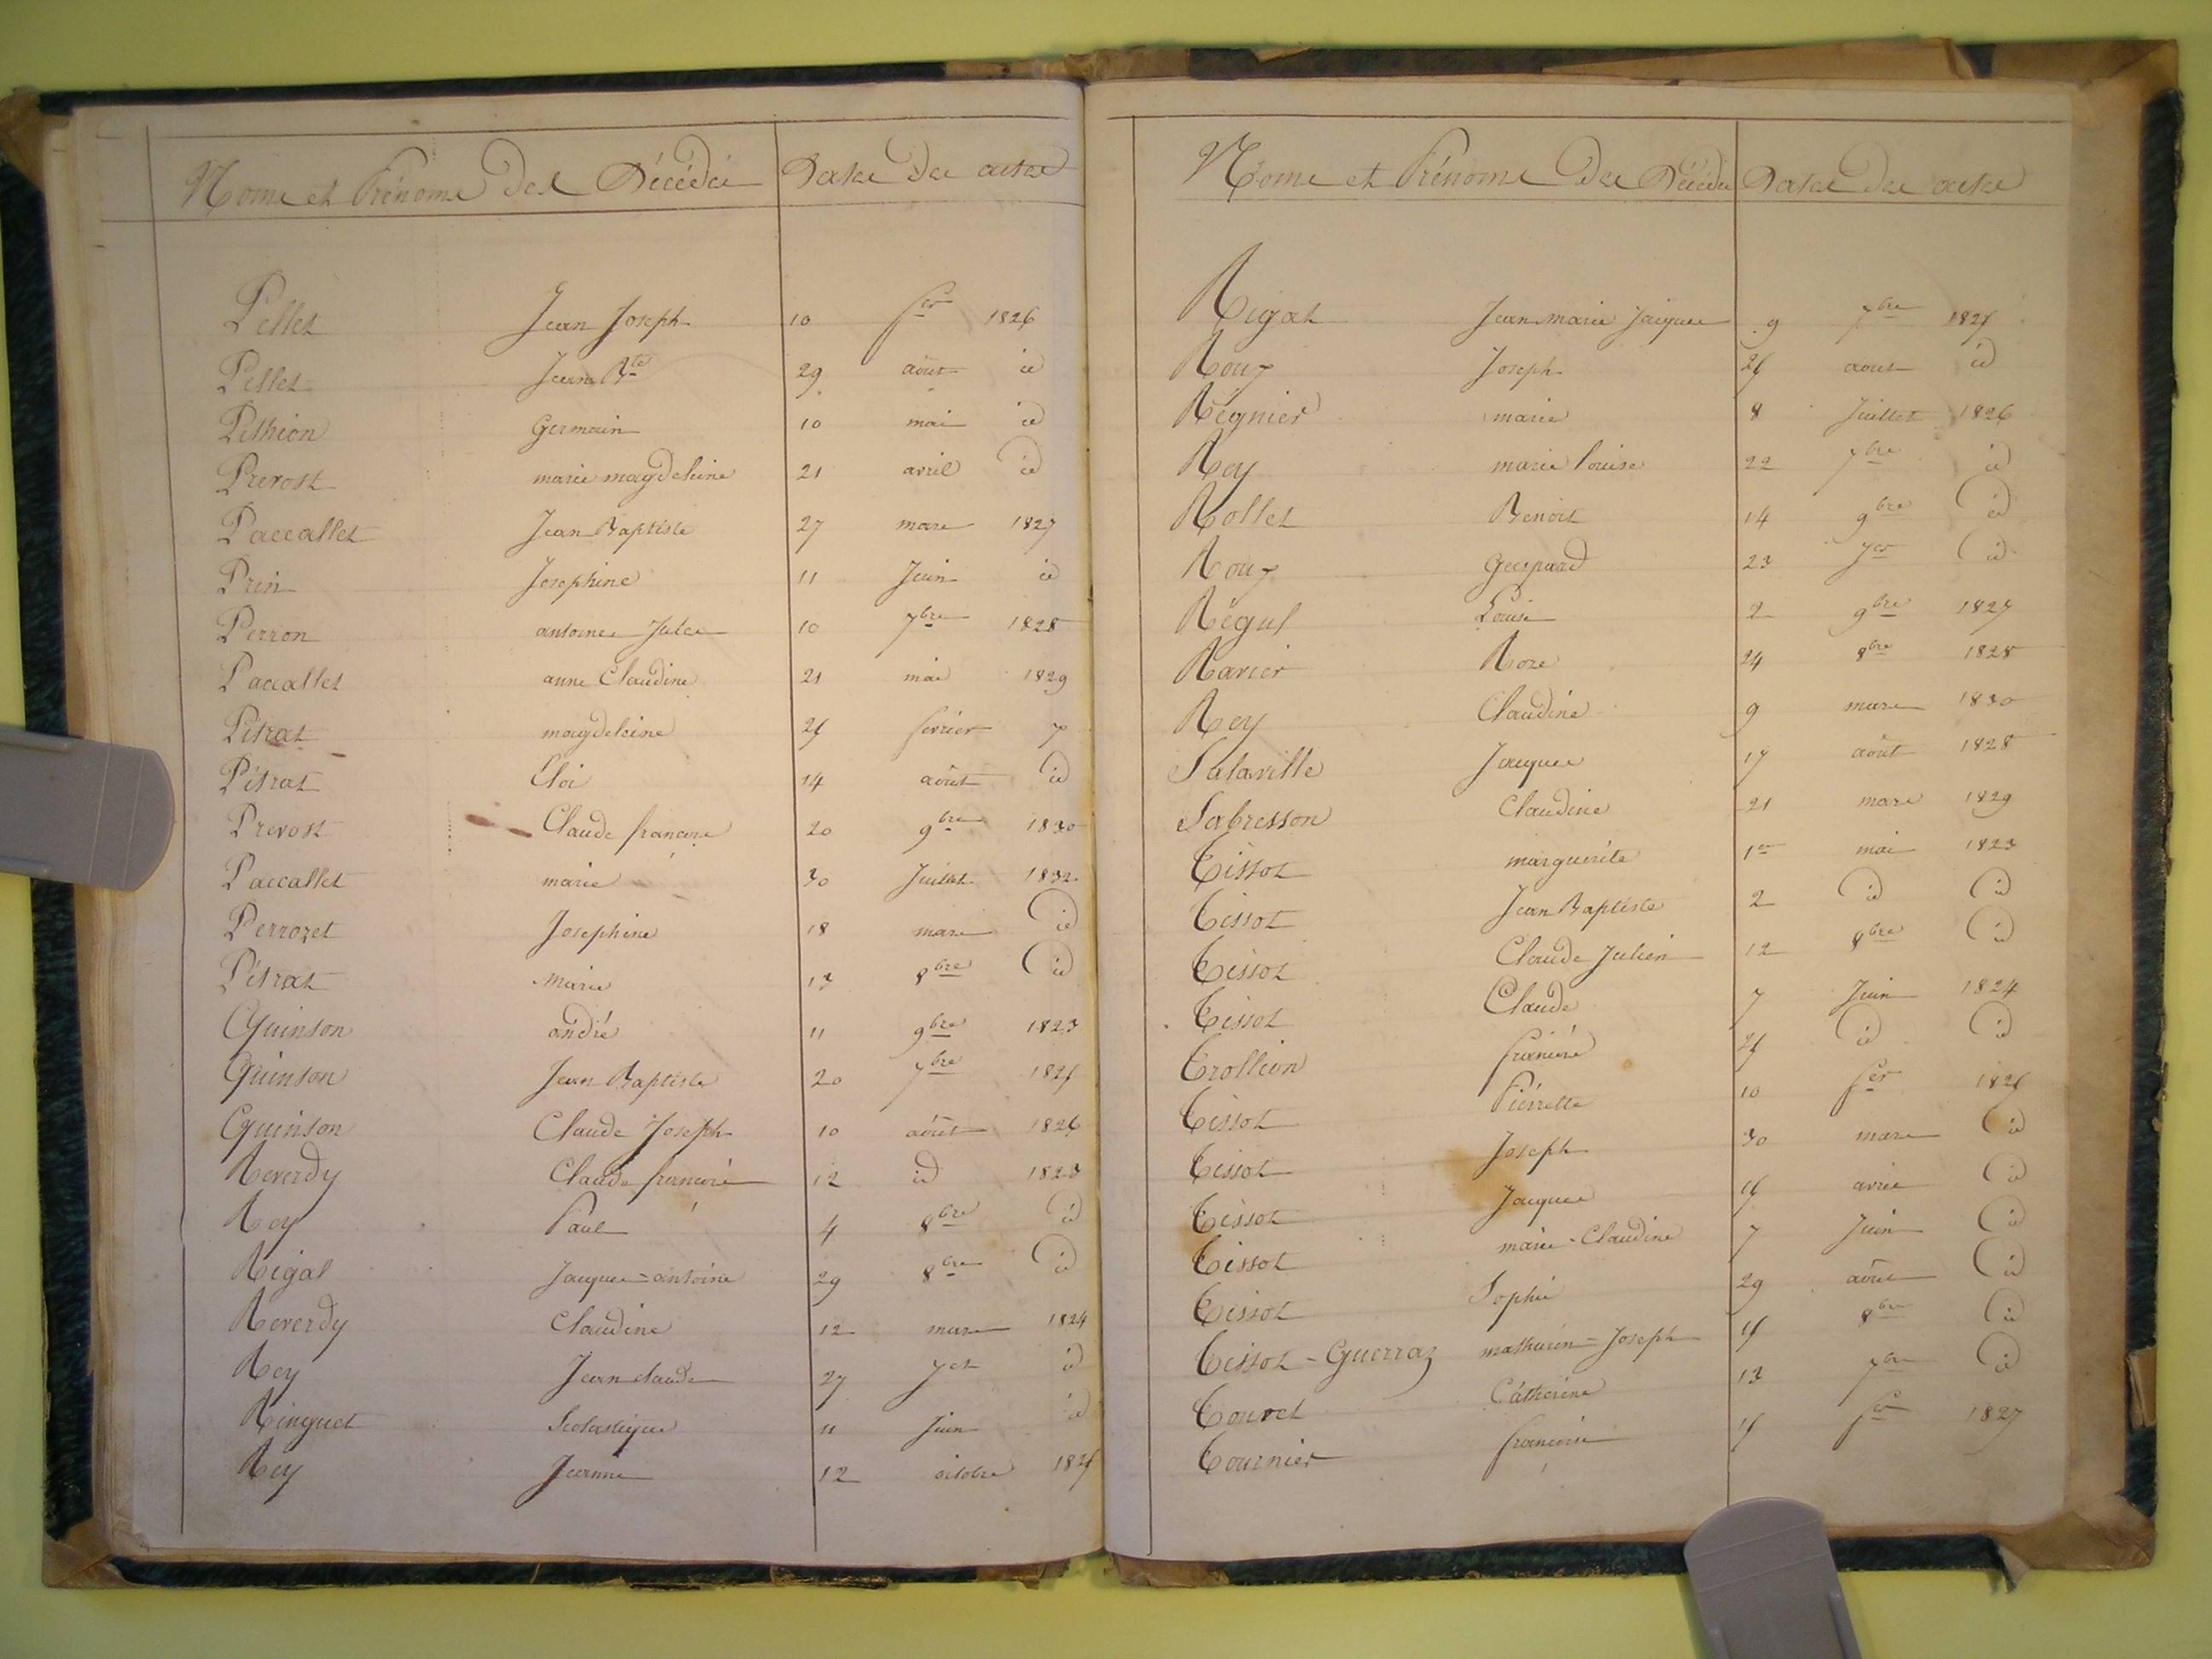 Noms et Prénoms des Décédés Dates des actes
Pellet Jean Joseph 10 fer 1826
Pellet Jean Bte 29 août id
Pethion Germain 10 mai id
Prevost marie magdeleine 21 avril id
Paccallet Jean Baptiste 27 mars 1827
Prin Josephine 11 Juin id
Perron antoine Jules 10 7bre 1828
Paccallet anne Claudine 21 mai 1829
Pétrat magdeleine 25 fevrier
Pétrat Eloi 14 août id
Prevost Claude françois 20 9bre 1830
Paccallet marie 30 Juillet 1832
Perrozet Josephine 18 mars id
Pétrat Marie 13 8bre id
Quinson andré 11 9bre 1823
Quinson Jean Baptiste 20 7bre 1825
Quinson Claude Joseph 10 août 1826
Reverdy Claude françois 12 id 1823
Rey Paul 4 8bre id
Rigal Jacques=antoine 29 8bre id
Reverdy Claudine 12 mars 1824
Rey Jean claude 27 Jer id
Ringuet Scolastique 11 Juin id
Rey Jeanne 12 octobre 1825
Noms et Prénoms des Décédés Dates des actes
Rigat Jean marie Jacques 9 7bre 1825
Roux Joseph 25 aout id
Régnier marie 8 Juillet 1826
Rey marie louise 22 7bre id
Rollet Benoit 14 9bre id
Roux Gaspard 23 Jer id
Régul Louise 2 9bre 1827
Ravier Roze 24 8bre 1828
Rey Claudine 9 mars 1830
Salaville Jacques 17 août 1828
Sabresson Claudine 21 mars 1829
Tissot marguerite 1er mai 1823
Tissot Jean Baptiste 2 id id
Tissot Claude Julien 12 8bre id
Tissot Claude 7 Juin 1824
Trollion françois 25 id id
Tissot Pierrette 10 fer 1825
Tissot Joseph 30 mars id
Tissot Jacques 15 avril id
Tissot marie-Claudine 7 Juin id
Tissot Sophie 29 août id
Tissot-Guerraz mathurin=Joseph 15 8bre id
Touret Cathérine 13 7bre id
Tournier françoise 15 fer 1827